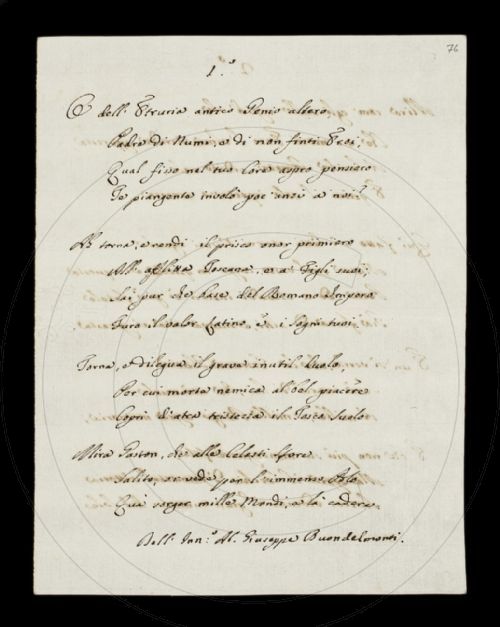 76
1.º
O dell'Etruria antico Genio altero
Padre di Numi, e di non finti Eroi;
Qual fisso nel tuo Core aspro pensiero
Te piangente involò poc'anzi a noi?
Ah torna, e rendi il prisco onor primiero
All'afflitta Toscana, e a' Figli suoi;
Sai pur che base del Romano Impero
Furo il valor Latino e i Sogni tuoi.
Torna, e dilegua il grave inutil duolo,
Per cui morta nemica al bel piacere
Coprì d'atra tristezza il Tosco suolo
Mira Gaston, che alle Celesti sfere
Salito, or vede per l'immenso Polo
Quà sorger mille Mondi, e là cadere.
Dell' Giuseppe Buondelmonti.